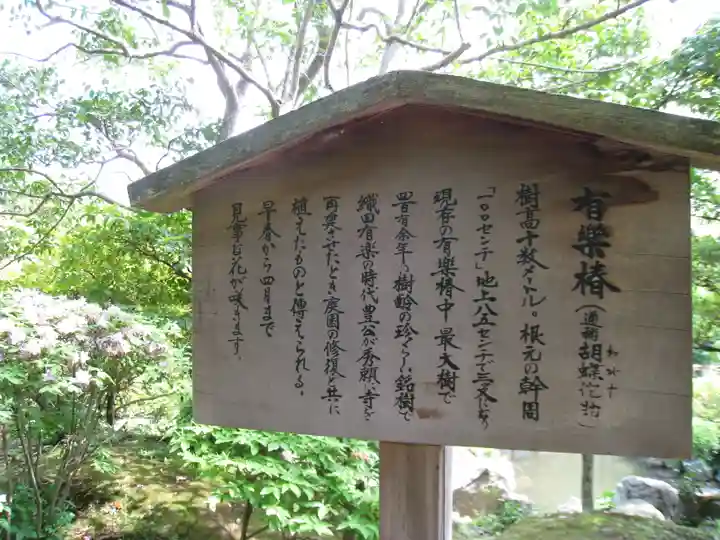 有樂椿(通称胡蝶侘助)
わびすけ
樹高十数メートル。根元の幹周
一〇〇センチ、地上八五センチで三叉になり
現存の有樂椿中、最大樹で
四百有余年の樹齢の珍らしい銘樹で
織田有楽の時代豊公が秀頼に寺を
再興させたとき庭園の修復と共に
植えたものと傳えられる。
早春から四月まで
見事な花が咲きます。